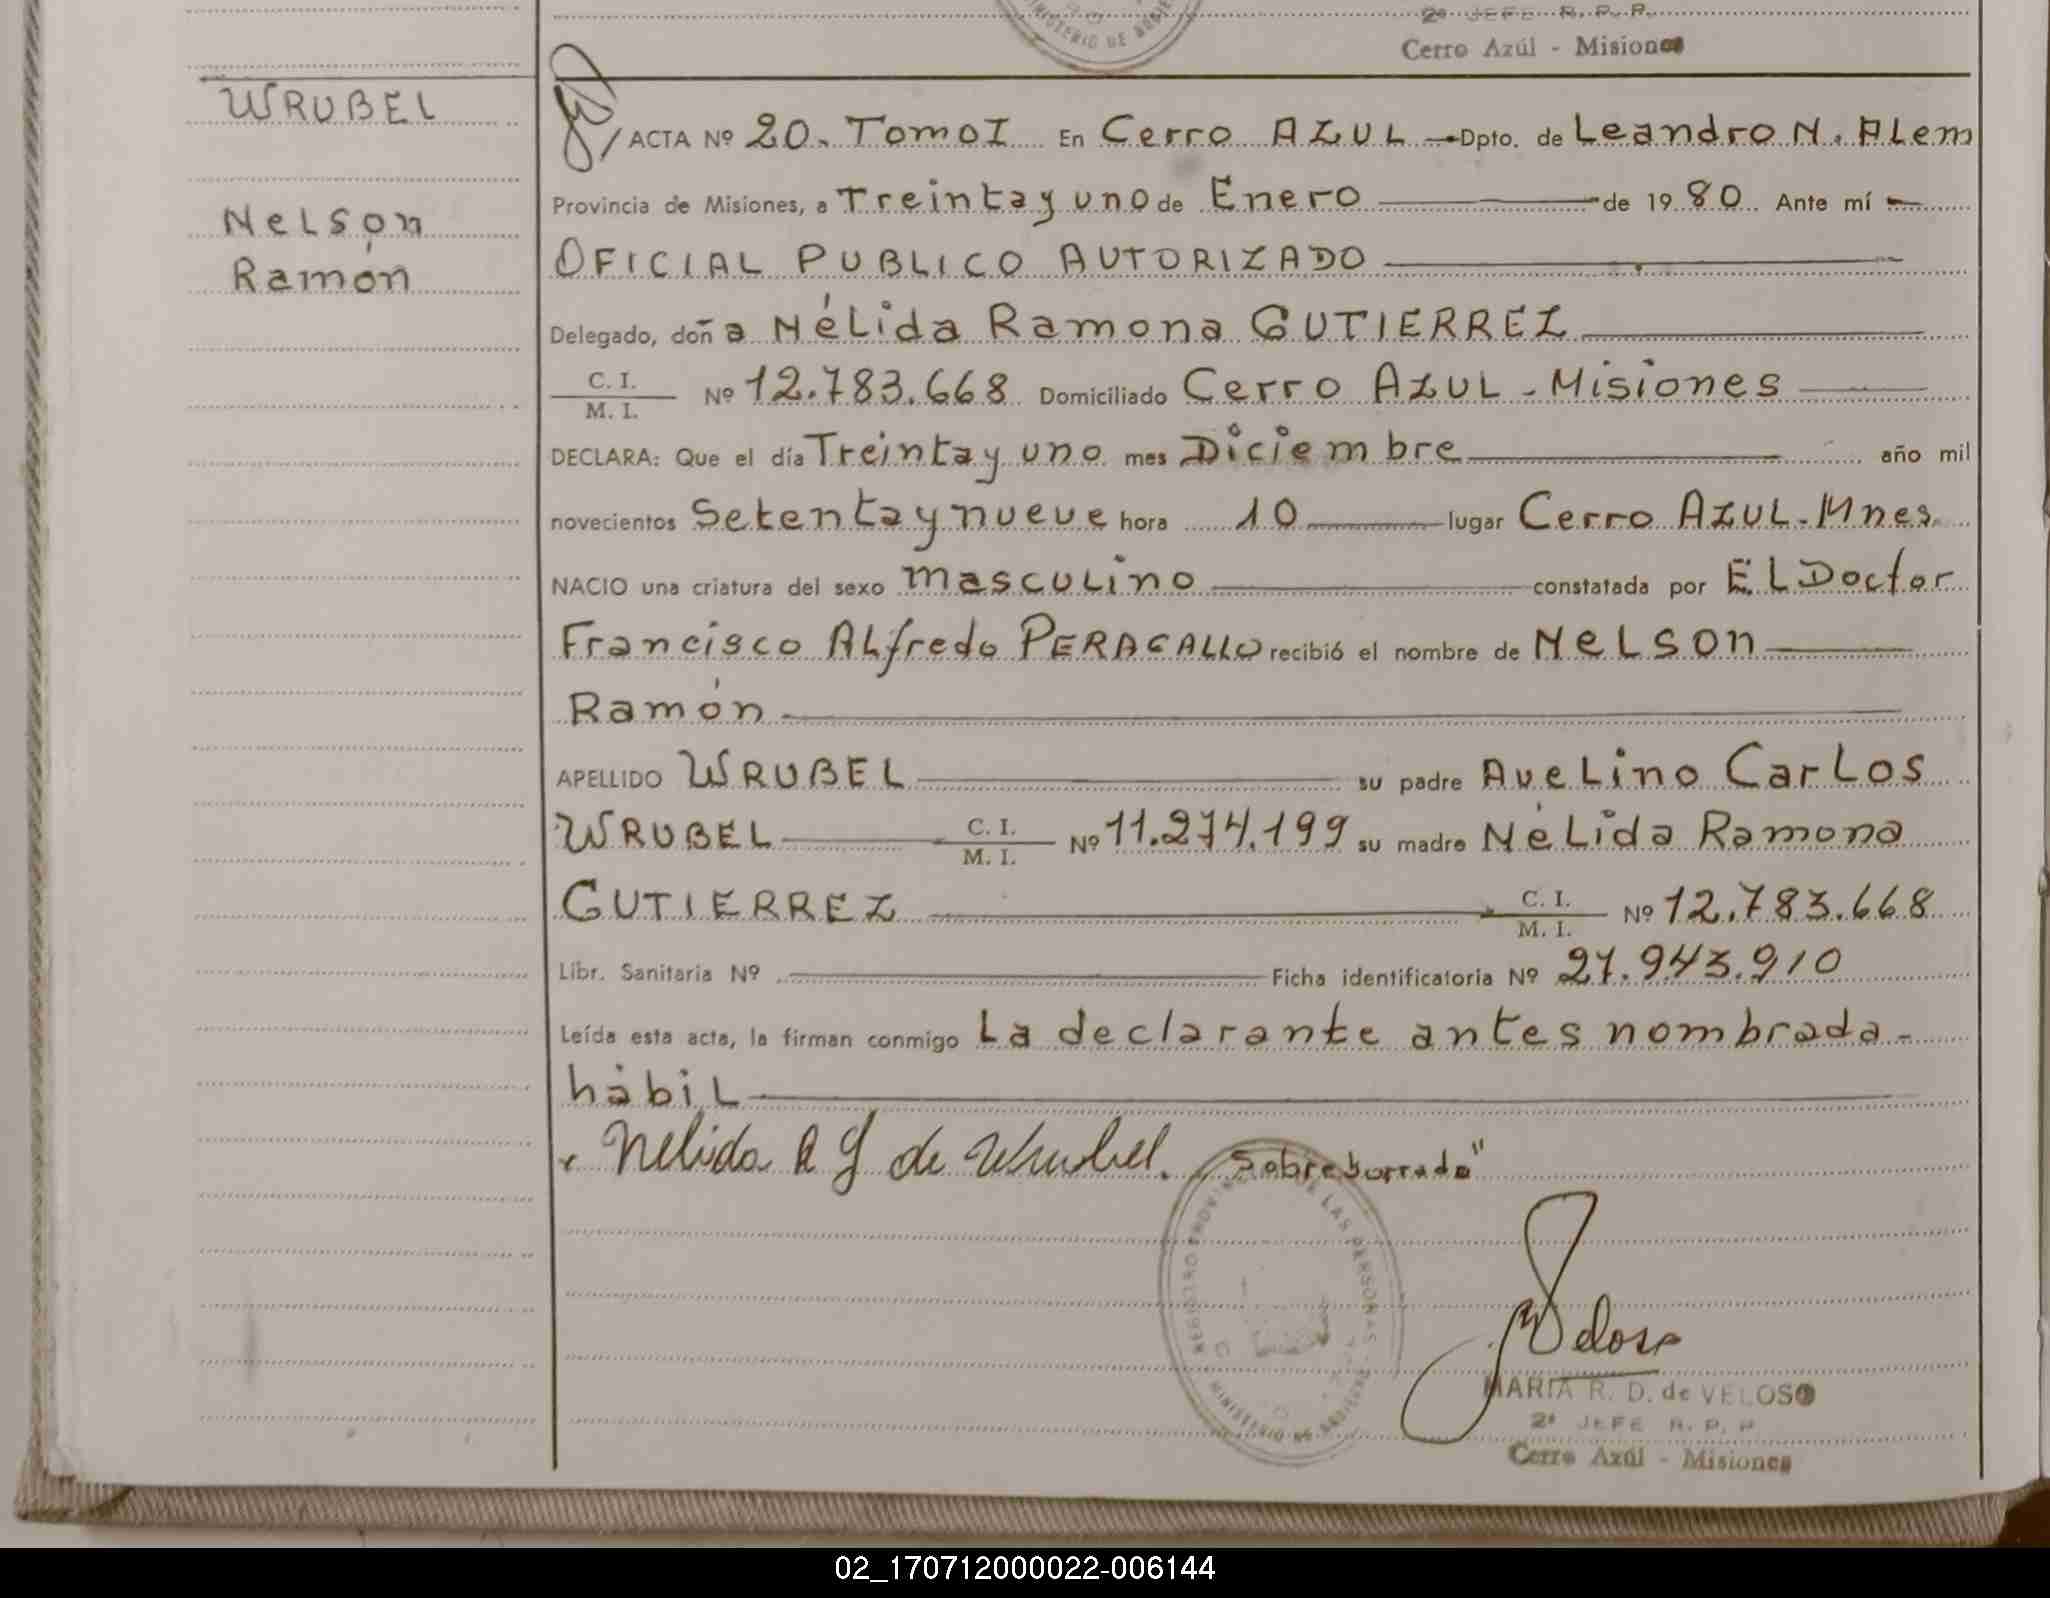 2º JEFE R. P. P.
MINISTERIO DE
Cerro Azúl - Misiones
WRUBEL
Nelson
Ramón
ACTA Nº 20. Tomo I En Cerro AZUL - Dpto. de Leandro N. ALem
Provincia de Misiones, a Treinta y uno de Enero de 1980 Ante mí
OFICIAL PUBLICO AUTORIZADO
Delegado, doña Nélida Ramona GUTIERREZ
C. I.
M. I. Nº 12.783.668 Domiciliado Cerro AZUL - Misiones
DECLARA: Que el día Treinta y uno mes Diciembre año mil
novecientos Setenta y nueve hora 10 lugar Cerro AZUL - Mnes.
NACIO una criatura del sexo masculino constatada por EL Doctor
Francisco ALfredo PERAGALLO recibió el nombre de NELSON
Ramón
APELLIDO WRUBEL su padre AveLino CarLos
WRUBEL C. I.
M. I. Nº 11.274.199 su madre NéLida Ramona
GUTIERREZ C. I.
M. I. Nº 12.783.668
Libr. Sanitaria Nº Ficha identificatoria Nº 27.943.910
Leída esta acta, la firman conmigo La declarante antes nombrada -
hábiL
Nelida R G de Wrubel. Sobreborrado"
REGISTRO PROVINCIAL DE LAS PERSONAS
MINISTERIO DE
Veloso
MARIA R. D. de VELOSO
2º JEFE R. P. P
Cerro Azúl - Misiones
02_170712000022-006144